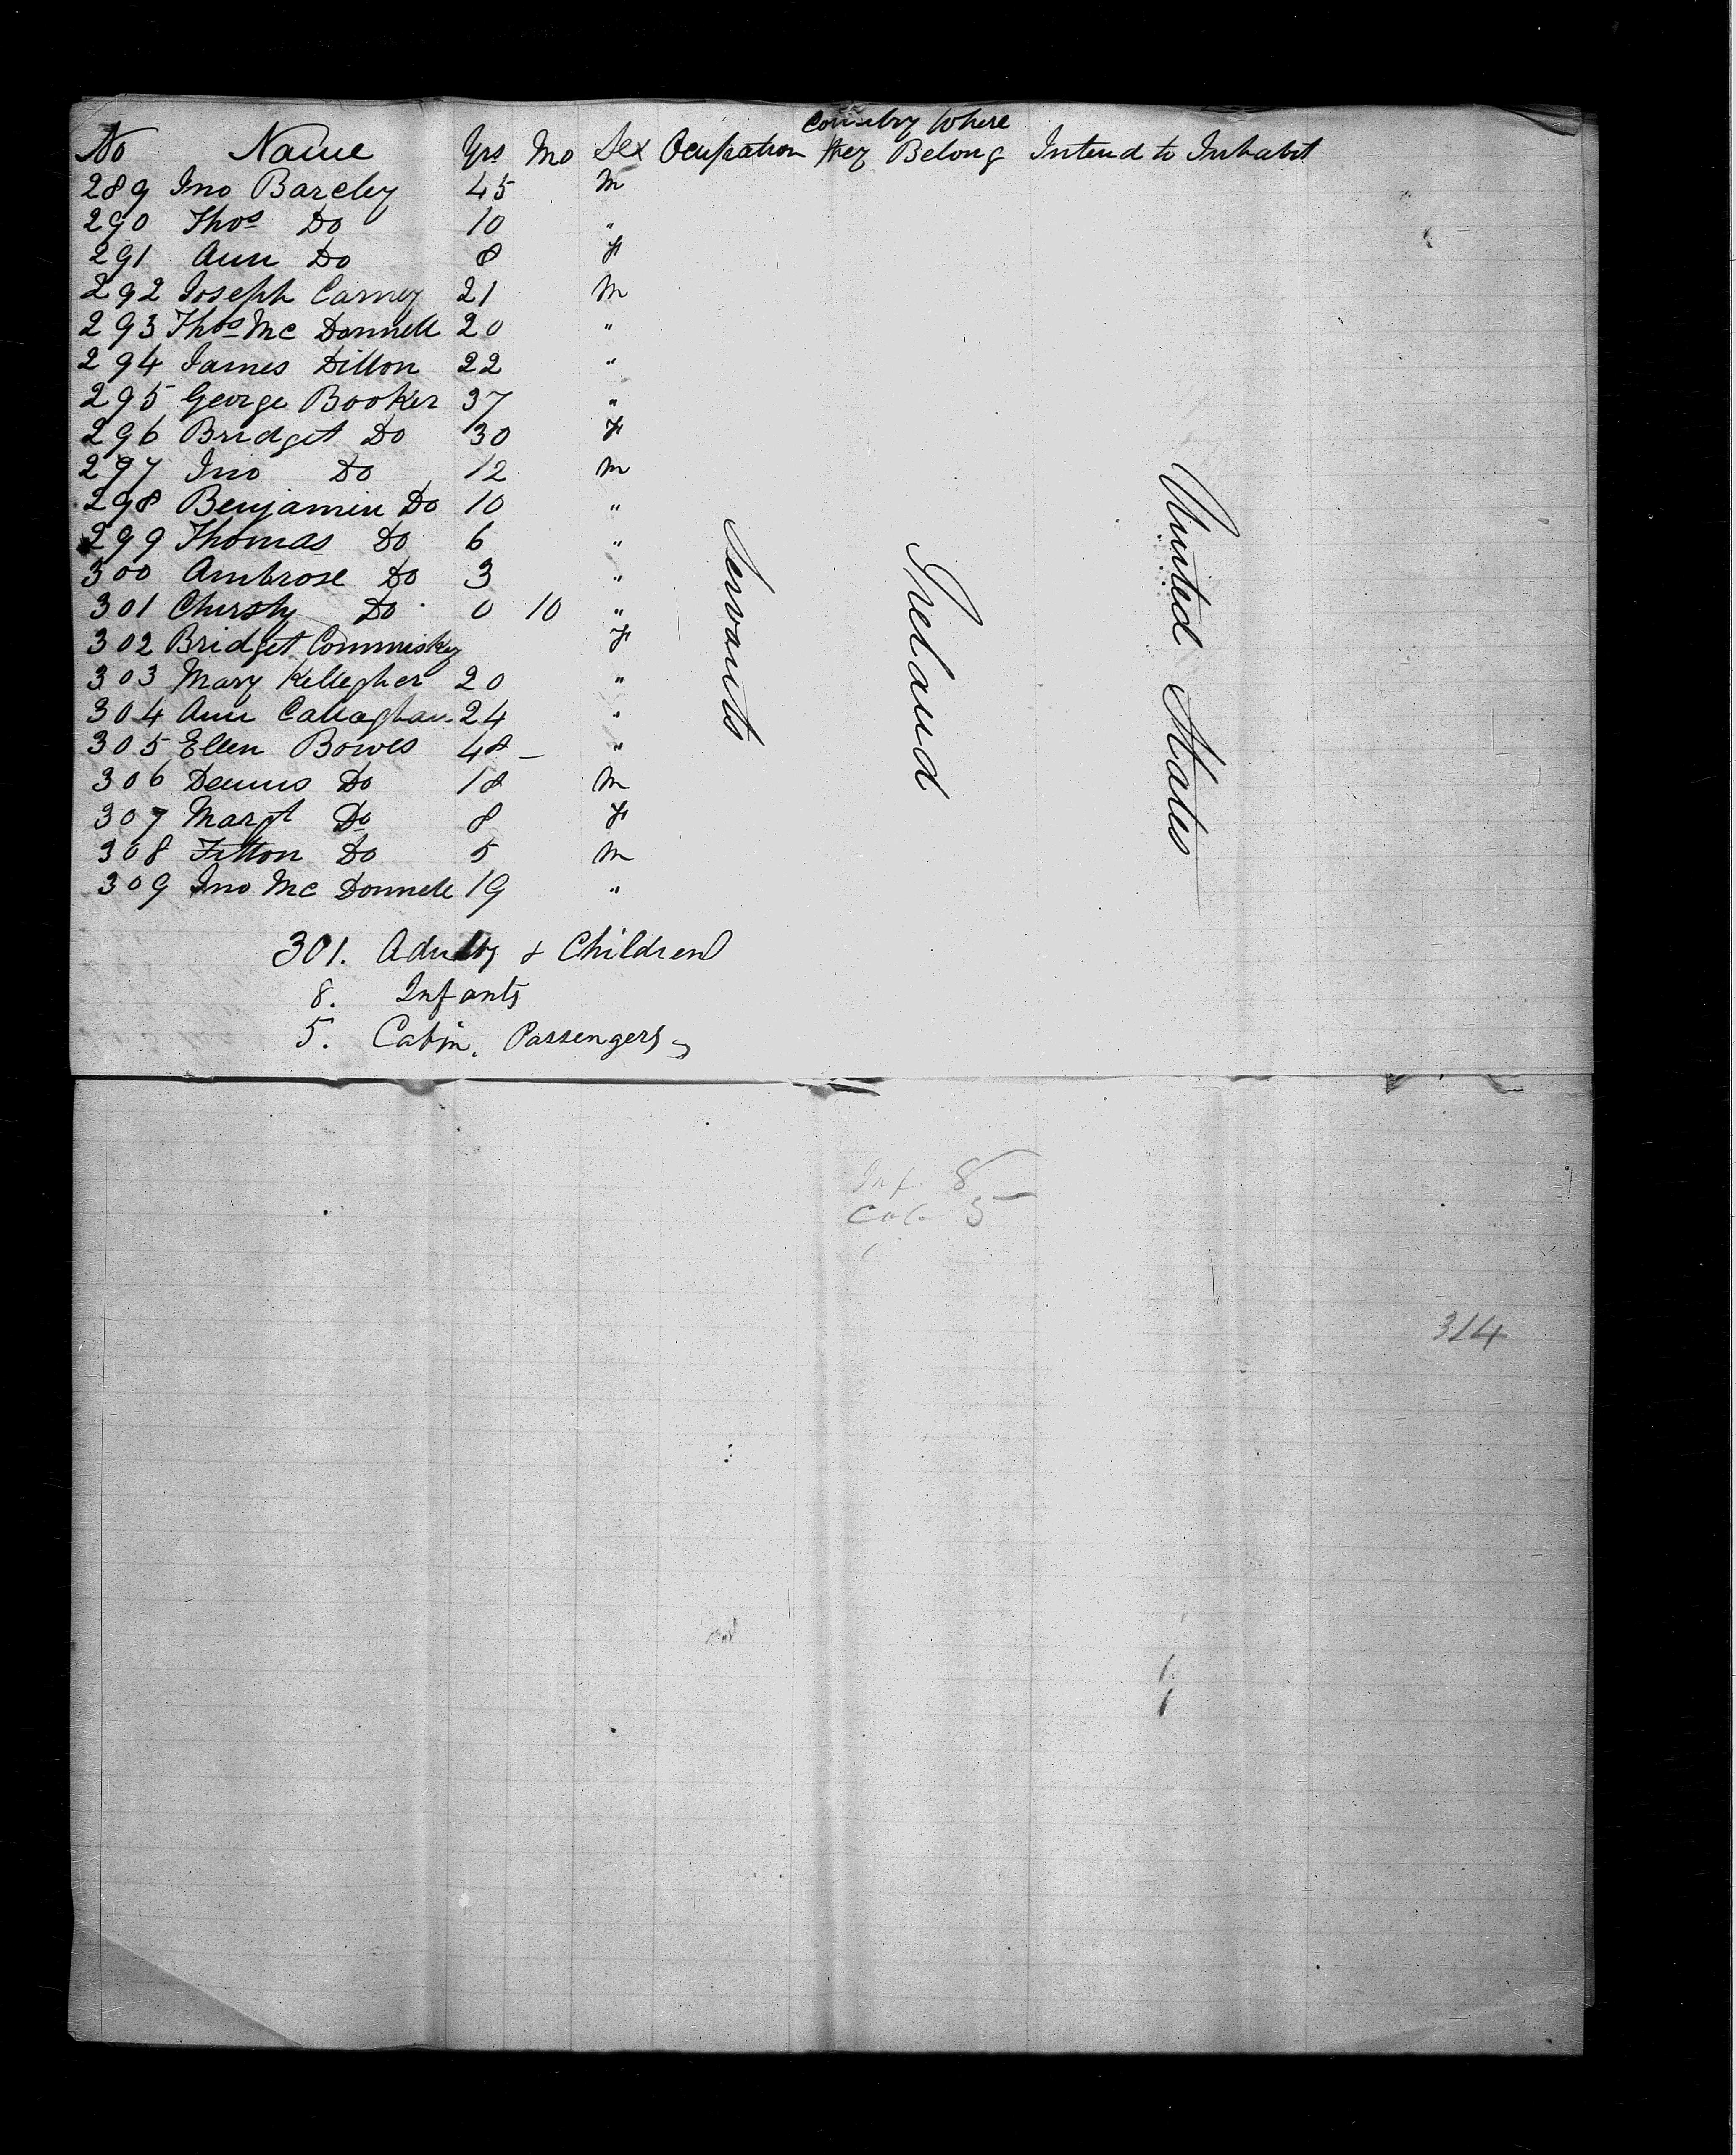 Country Where
No Name Yrs Mo Sex Ocupation they Belong Intend to Inhabit
289 Jno Barcley 45 M
290 Thos Do 10 "
291 Ann Do 8 F
292 Joseph Carney 21 M
293 Thos Mc Donnell 20 "
294 James Dillon 22 "
295 George Booker 37 "
296 Bridget Do 30 F
297 Jno Do 12 M
298 Benjamin Do 10 "
299 Thomas Do 6 "
300 Ambrose Do 3 "
301 Chirsty Do 0 10 "
302 Bridget Commisky F
303 Mary Kellegher 20 "
304 Ann Callaghan 24 "
305 Ellen Bowes 48 "
306 Dennis Do 18 M
307 Margt Do 8 F
308 Fitton Do 5 M
309 Jno Mc Donnell 19 "
Servants
Ireland
United States
301. Adults & Children
8. Infants
5. Cabin. Passengers
Inf 8
Cab 5
314